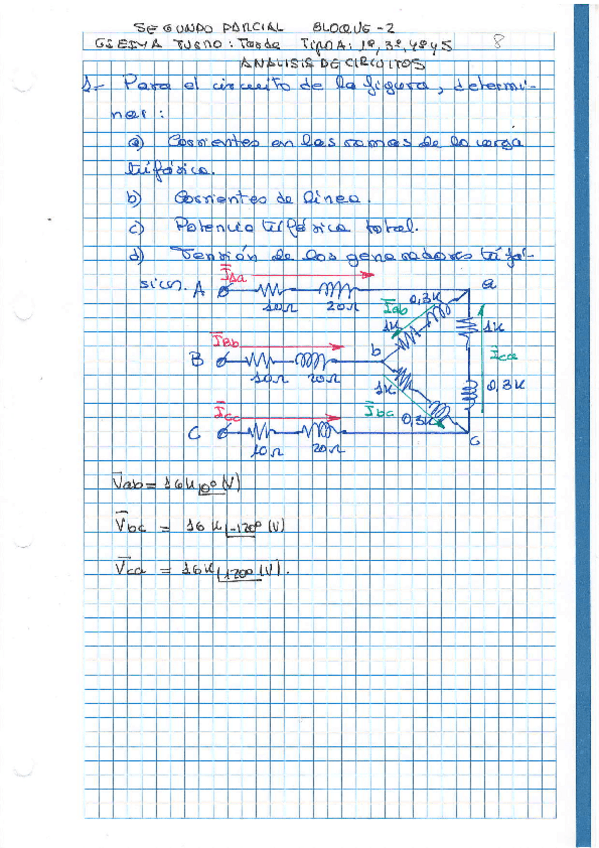 SEGUNDO PARCIAL BLOQUE-2
GIEIYA TURNO: Tarde TIPO A: 1º, 3º, 4º y 5 8
ANALISIS DE CIRCUITOS
1- Para el circuito de la figura, determi-
nar:
a) Corrientes en las ramas de la carga
trifásica.
b) Corrientes de linea.
c) Potencia trifásica total.
d) Tensión de los generadores trifá-
sicos.
I̅Aa
A 10Ω 20Ω 0,3K a
I̅ab 1K 1K
I̅Bb b I̅ca
B 10Ω 20Ω 1K 0,3K
I̅Cc I̅bc 0,3K
C 10Ω 20Ω c
V̅ab = 16K|0º (V)
V̅bc = 16K|-120º (V)
V̅ca = 16K|120º (V).